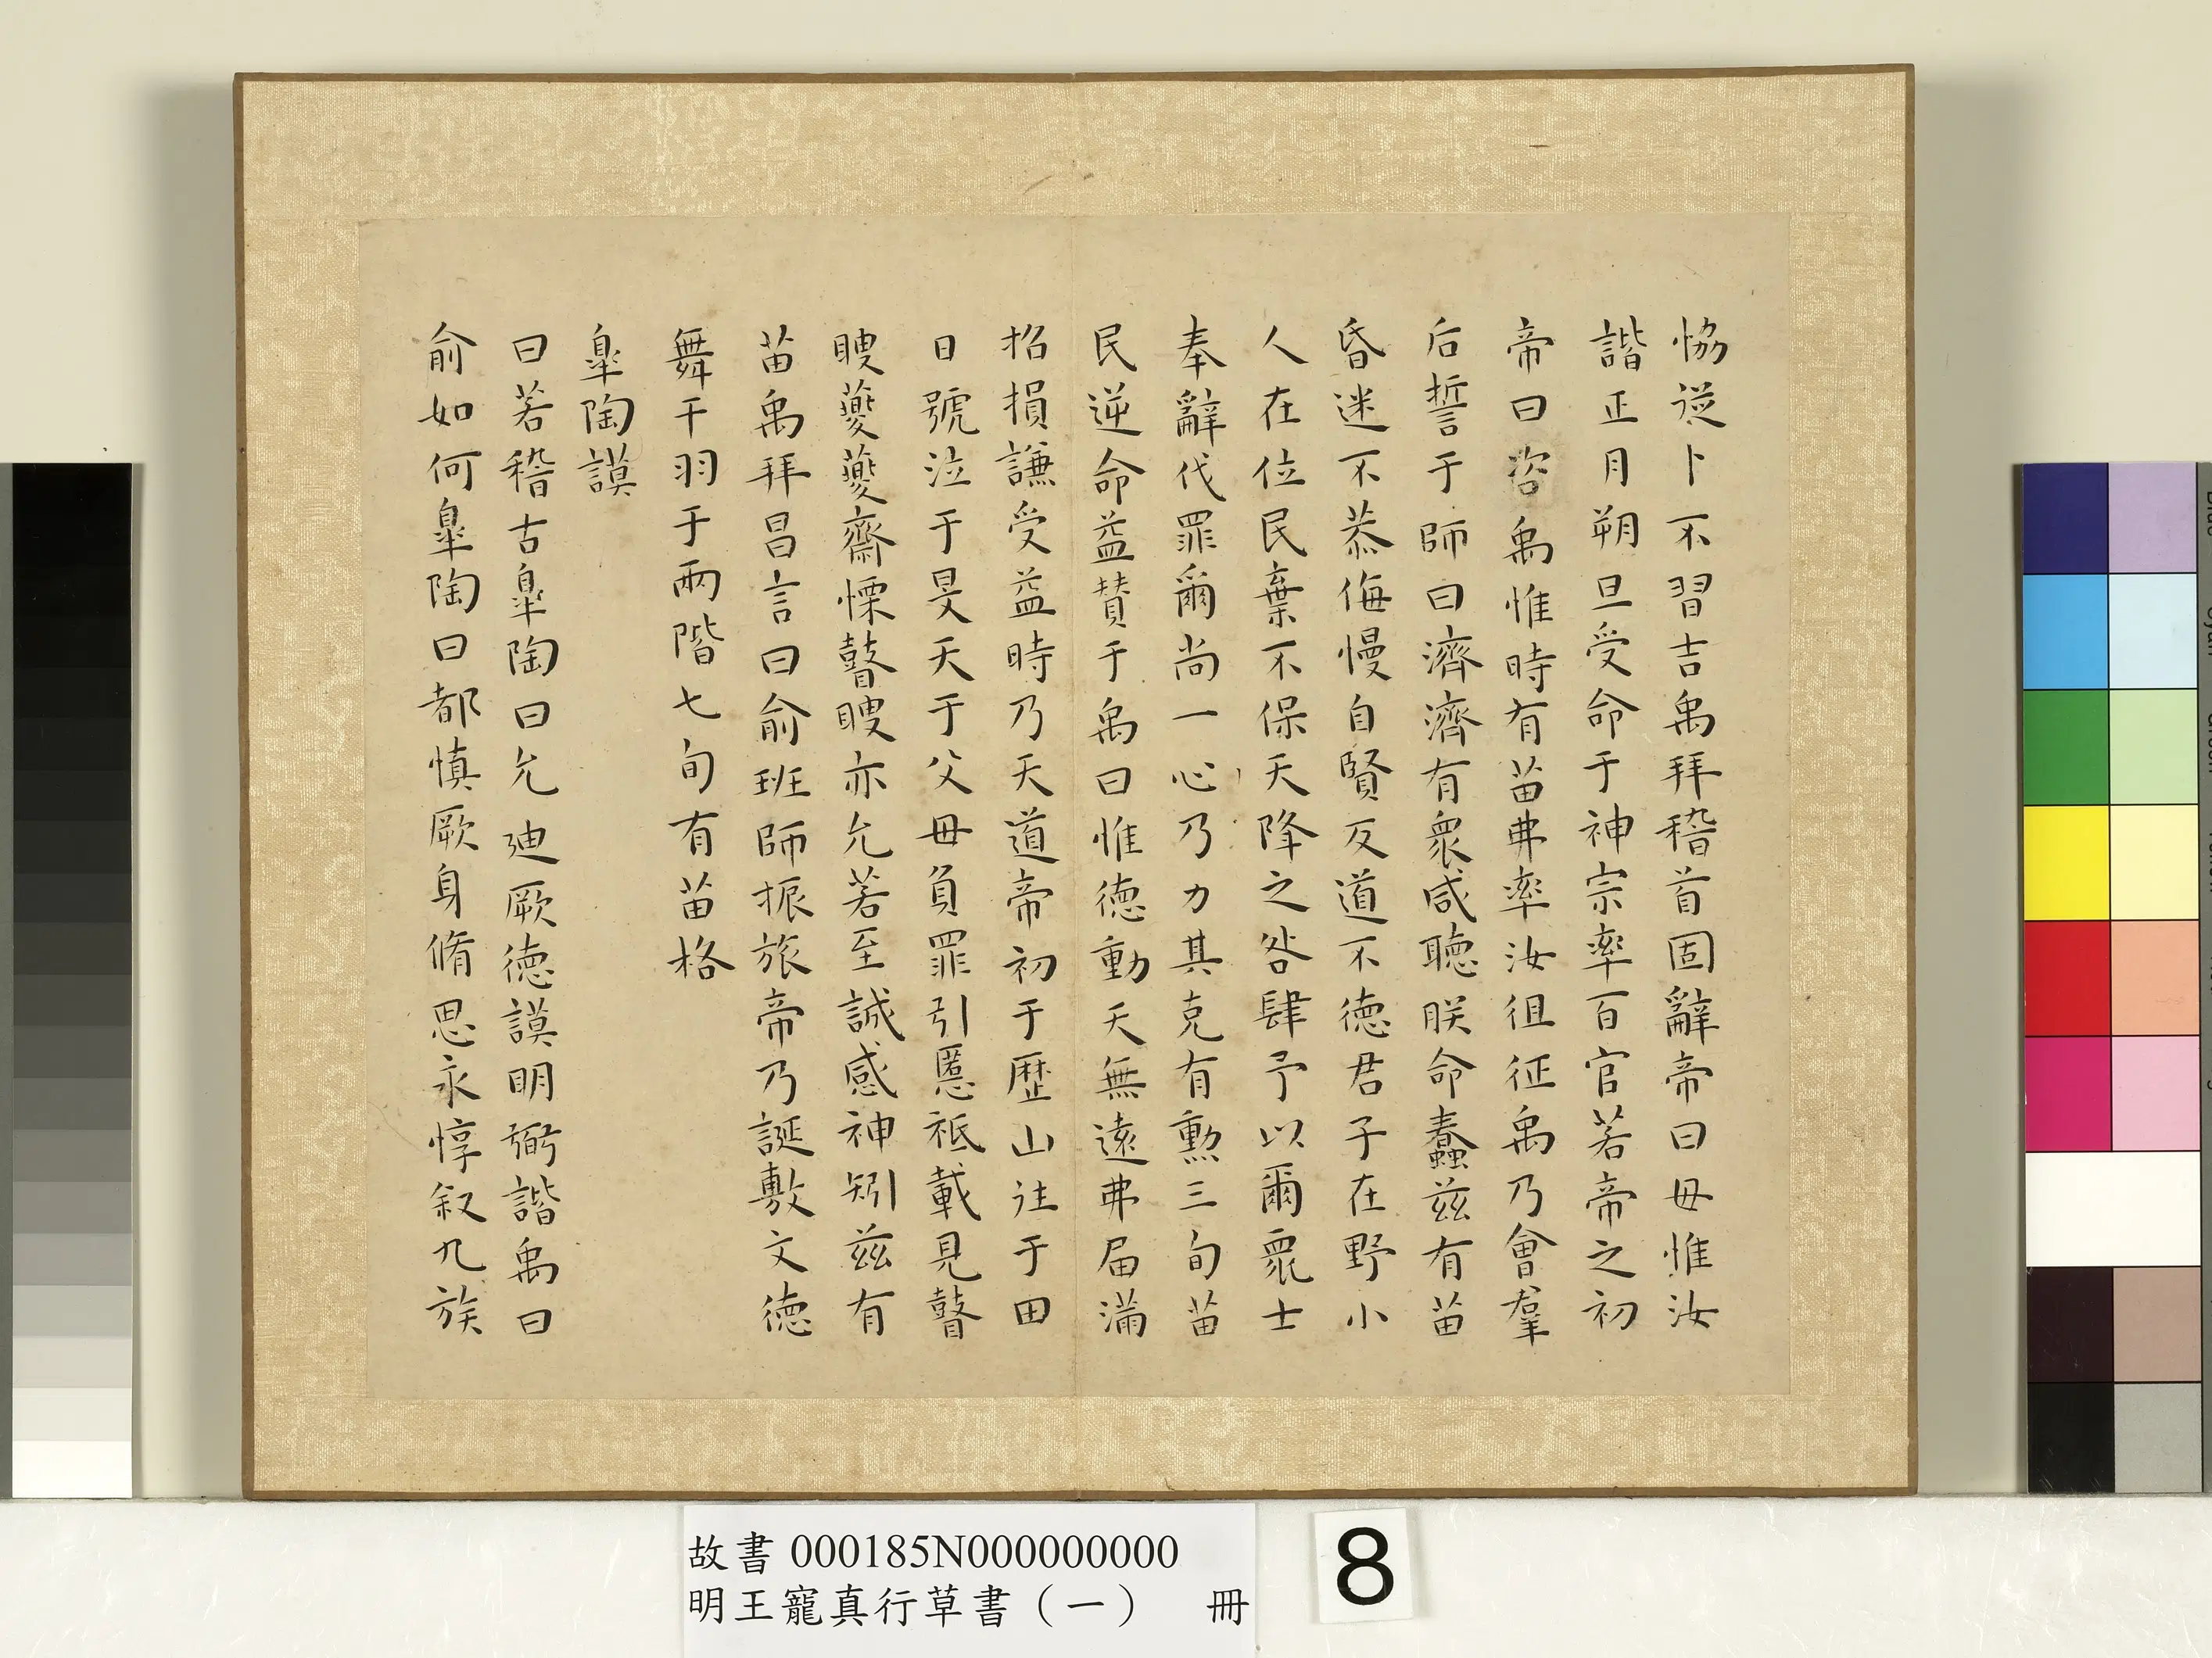 恊從卜不習吉禹拜稽首固辭帝曰毋惟汝
諧正月朔旦受命于神宗率百官若帝之初
帝曰咨禹惟時有苗弗率汝徂征禹乃會羣
后誓于師曰濟濟有衆咸聽朕命蠢兹有苗
昏迷不恭侮慢自賢反道不德君子在野小
人在位民棄不保天降之咎肆予以爾衆士
奉辭伐罪爾尚一心乃力其克有勲三旬苗
民逆命益賛于禹曰惟德動天無遠弗届滿
招損謙受益時乃天道帝初于歷山往于田
日號泣于旻天于父母負罪引慝祗載見瞽
瞍夔夔齋慄瞽瞍亦允若至誠感神矧兹有
苗禹拜昌言曰俞班師振旅帝乃誕敷文德
舞干羽于兩階七旬有苗格
臯陶謨
曰若稽古臯陶曰允迪厥德謨明弼諧禹曰
俞如何臯陶曰都慎厥身脩思永惇叙九族
故書 000185N000000000
明王寵真行草書（一） 冊
8